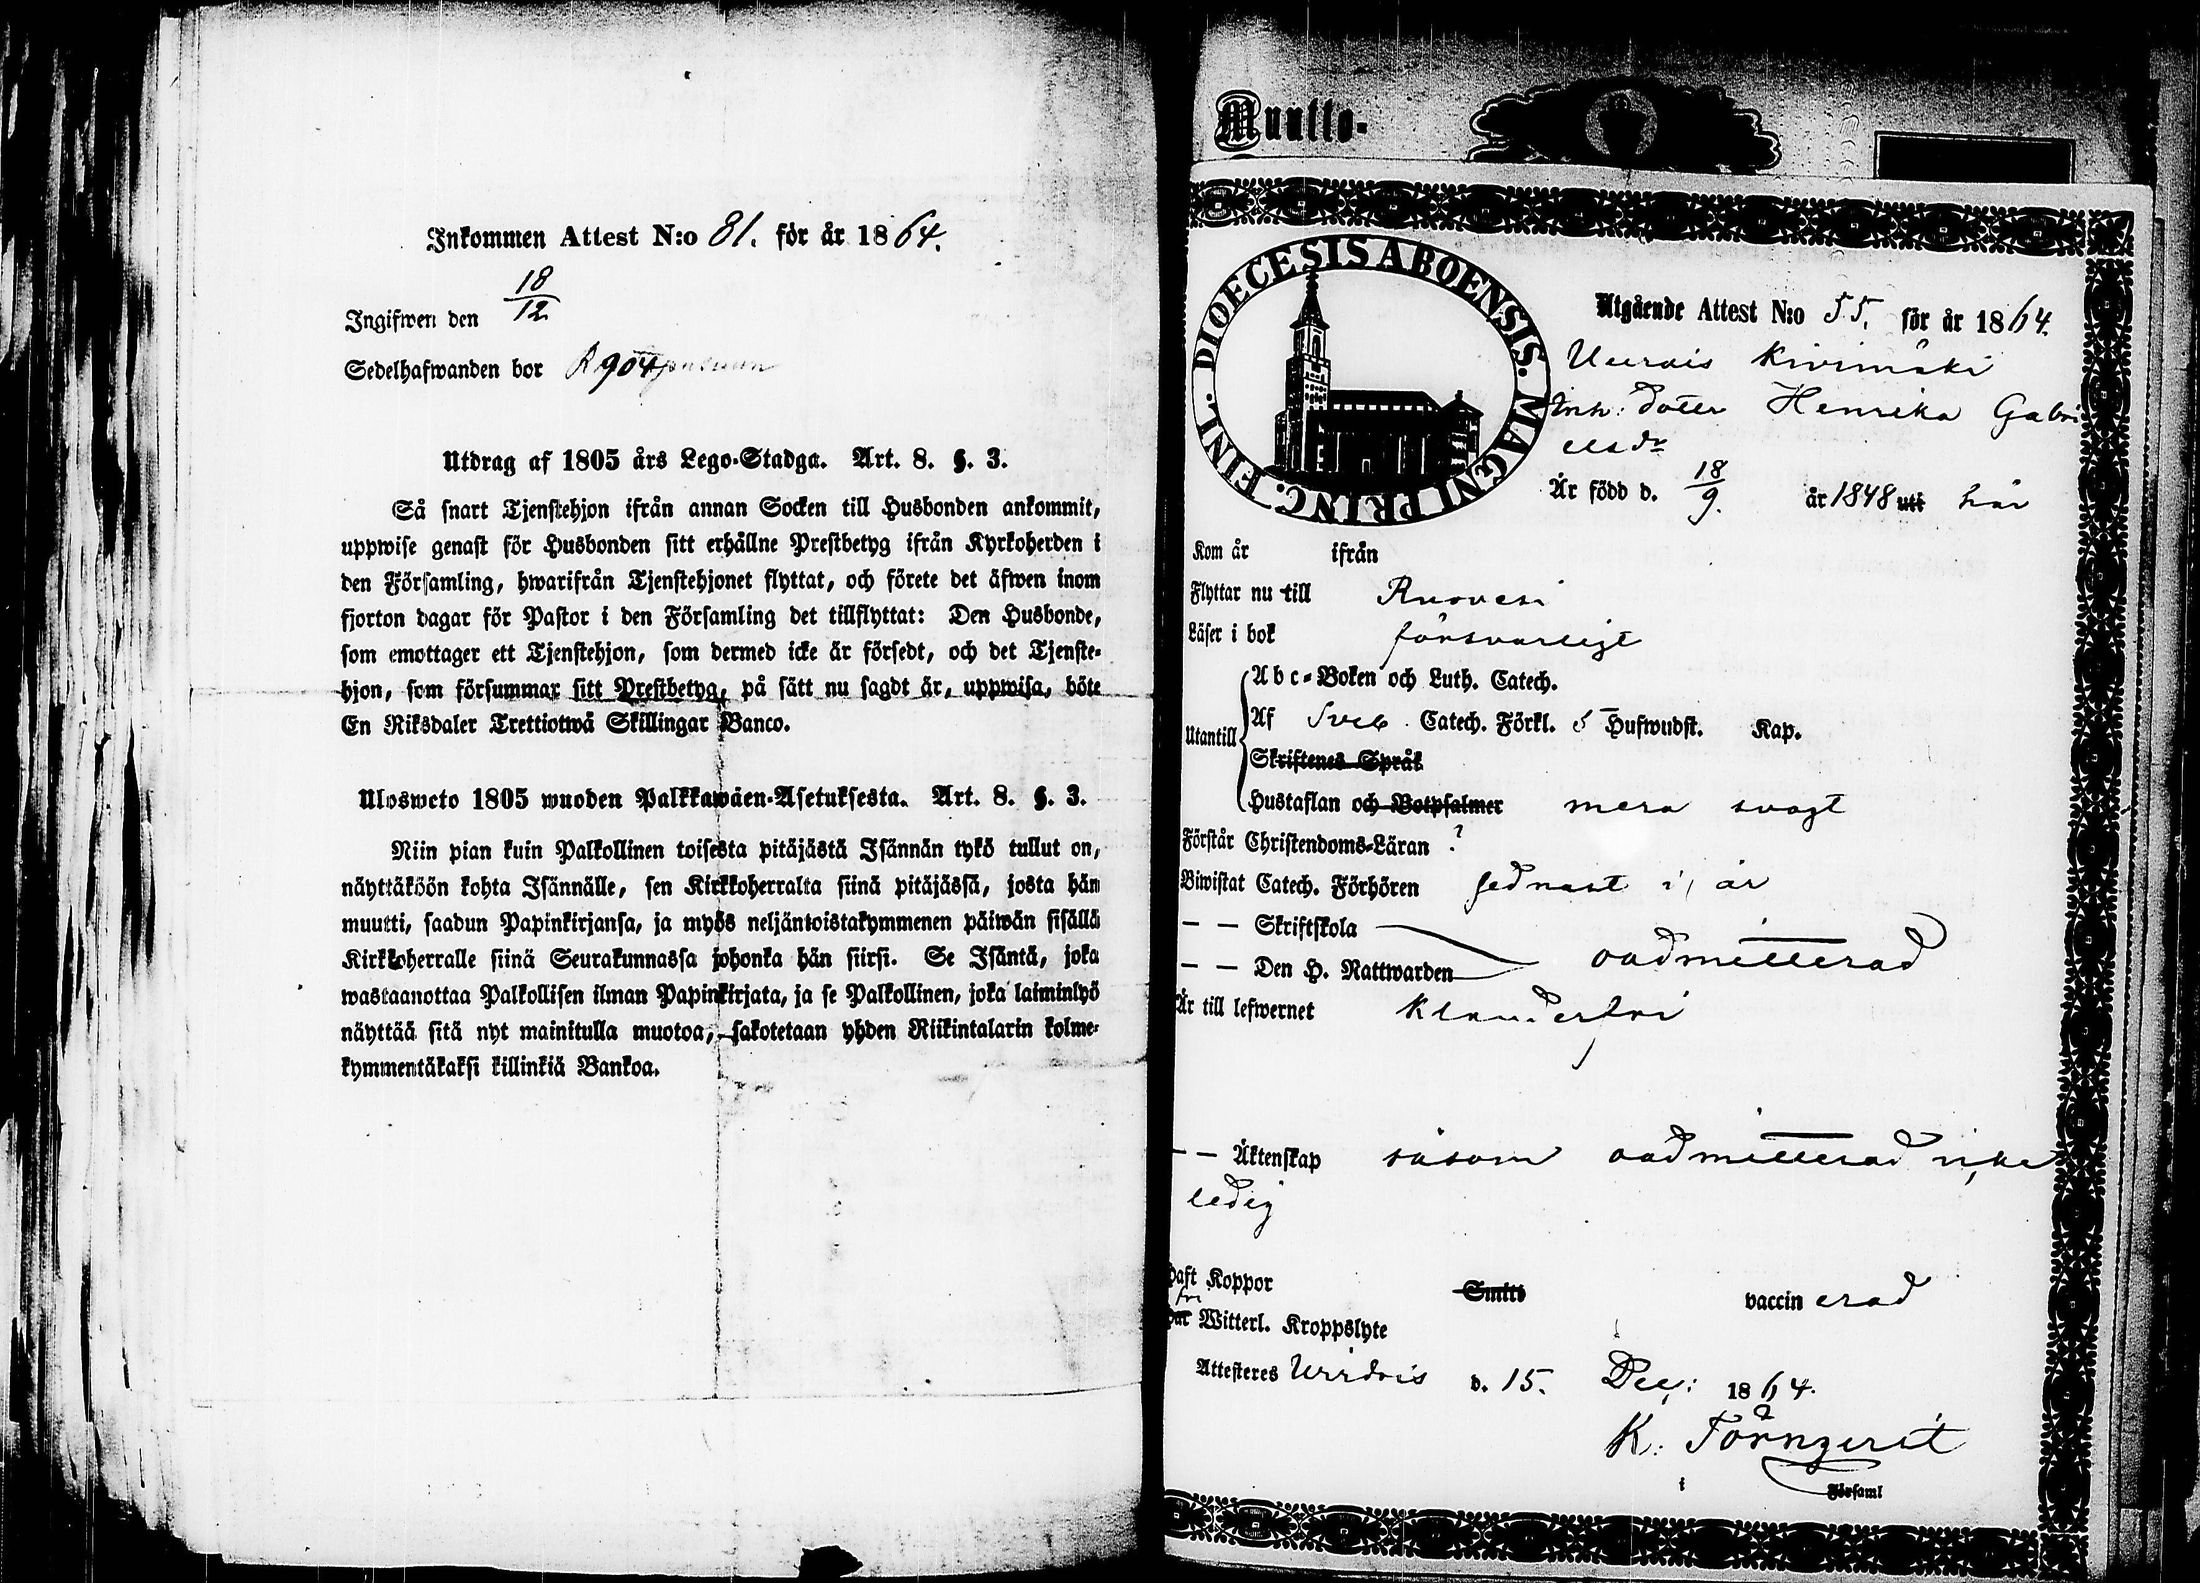 Inkommen Attest N:o 81. för år 1864.
Ingifwen den 18/12
Sedelhafwanden bor
Utdrag af 1805 års Lego-Stadga. Art. 8. §. 3.
Så snart Tjenstehjon ifrån annan Socken till Husbonden ankommit,
uppwise genast för Husbonden sitt erhållne Prestbetyg ifrån Kyrkoherden i
den Församling, hwarifrån Tjenstehjonet flyttat, och förete det äfwen inom
fjorton dagar för Pastor i den Församling det tillflyttat: Den Husbonde,
som emottager ett Tjenstehjon, som dermed icke är försedt, och det Tjenste-
hjon, som försummar sitt Prestbetyg, på sätt nu sagdt är, uppwisa, böte
En Riksdaler Trettiotwå Skillingar Banco.
Ulosweto 1805 wuoden Palkkawäen-Asetuksesta. Art. 8. §. 3.
Niin pian kuin Palkollinen toisesta pitäjästä Isännän tykö tullut on,
näyttäköön kohta Isännälle, sen Kirkkoherralta siinä pitäjässä, josta hän
muutti, saadun Papinkirjansa, ja myös neljäntoistakymmenen päiwän sisällä
Kirkkoherralle siinä Seurakunnassa johonka hän siirsi. Se Isäntä, joka
wastaanottaa Palkollisen ilman Papinkirjata, ja se Palkollinen, joka laiminlyö
näyttää sitä nyt mainitulla muotoa, sakotetaan yhden Riikintalarin kolme-
kymmentäkaksi killinkiä Bankoa.
Muutto-
DIOECESIS ABOENSIS. MAGNI PRINC. FINL.
Utgående Attest N:o 55. för år 1864.
Kivimäki
Inh: doter Henrika Gabri
elsdr
Är född d. 18/9. år 1848 uti här
Kom år ifrån
Flyttar nu till Ruovesi
Läser i bok försvarligt
Abc-Boken och Luth. Catech.
Utantill Af Sveb. Catech. Förkl. 5 Hufwudst. Kap.
Skriftenes Språk
Hustaflan och Botpsalmer mera svagt
Förstår Christendoms-Läran ?
Biwistat Catech. Förhören sednast i år
— — Skriftskola
— — Den H. Nattwarden oadmitterad
Är till lefwernet klanderfri
— — Äktenskap såsom oadmitterad icke
ledig
Haft Koppor Smitt vaccinerad
fri
Har Witterl. Kroppslyte
Attesteres Urdois d. 15. Dec: 1864.
K. Törnqvist
i Församl